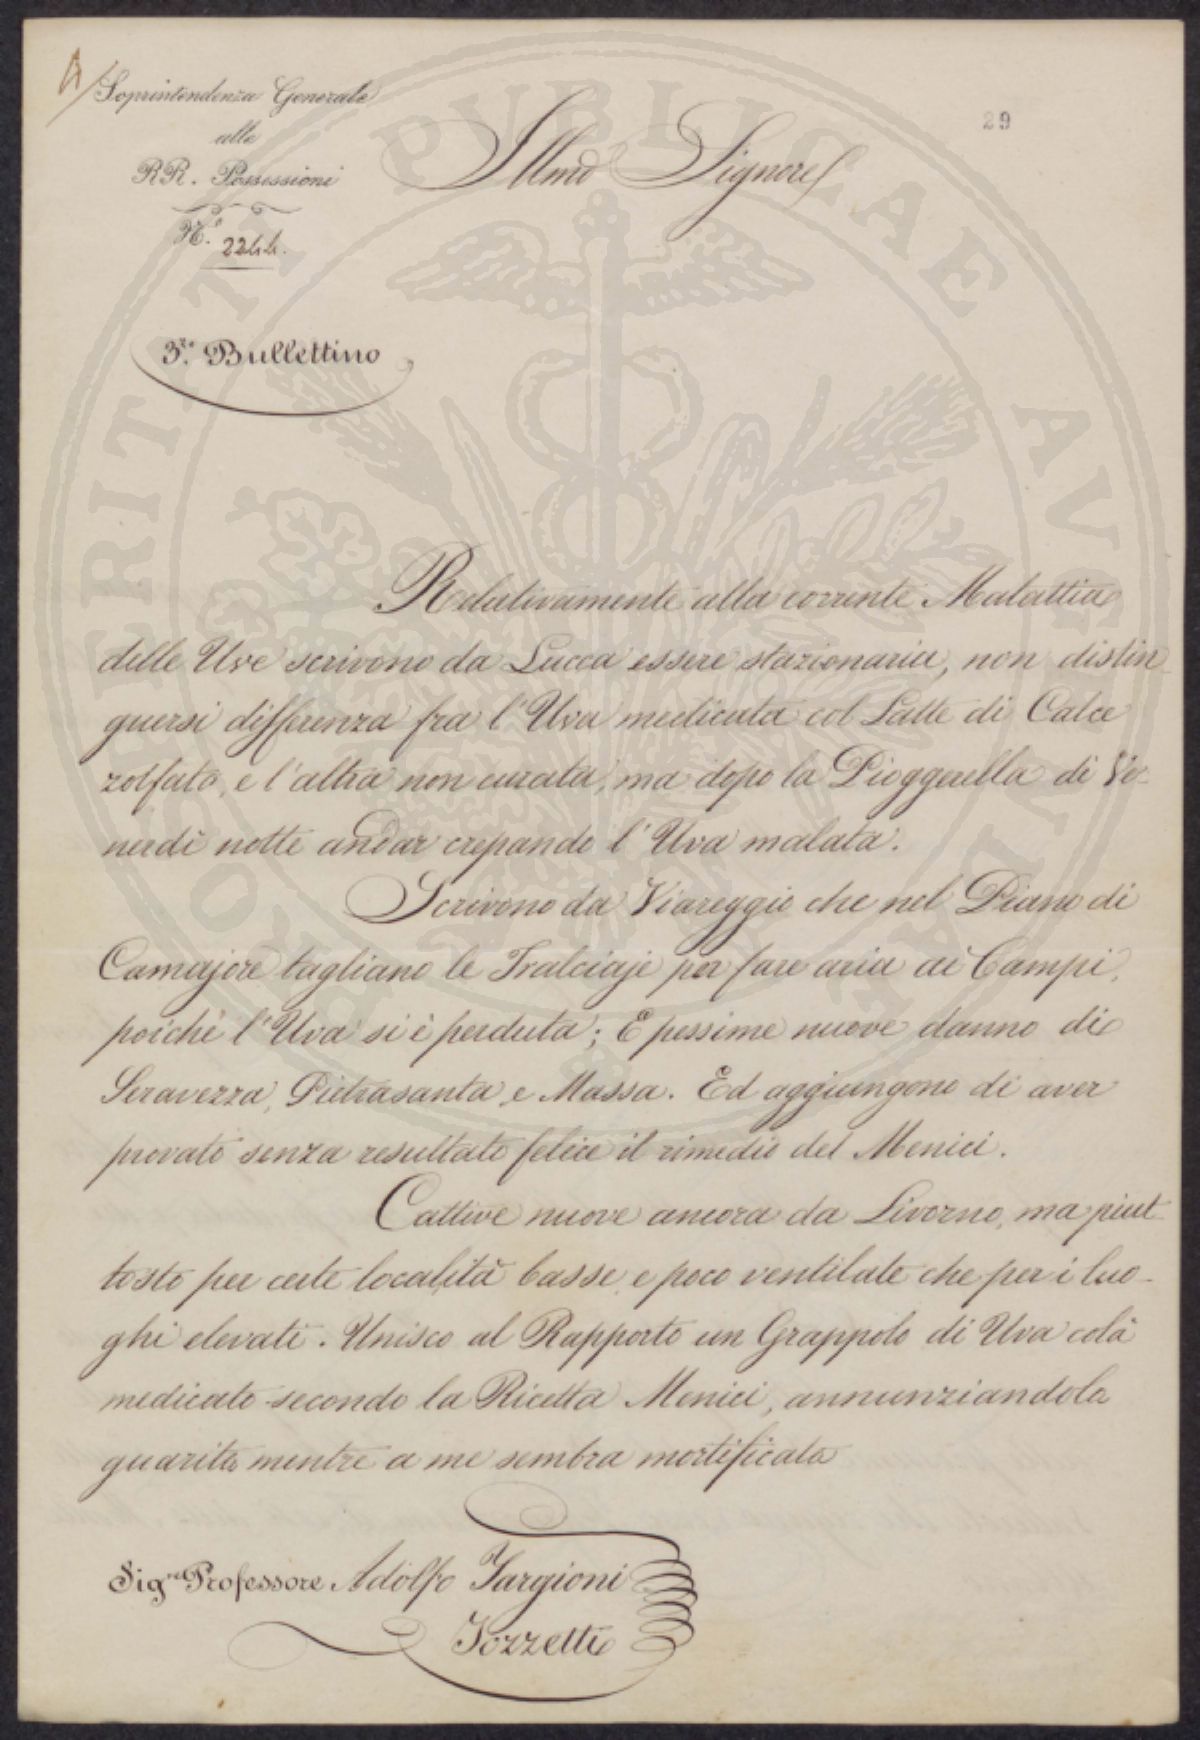 A/
Soprintendenza Generale
alle
RR. Possessioni
N.° 2244.
29
Illmo Signore
3.zo Bullettino
Relativamente alla corrente Malattia
delle Uve scrivono da Lucca essere stazionaria, non distin
guersi differenza fra l'Uva medicata col Latte di Calce
zolfato, e l'altra non curata, ma dopo la Pioggerella di Ve-
nerdì notte andar crepando l'Uva malata.
Scrivono da Viareggio che nel Piano di
Camajore tagliano le Tralciaje per fare aria ai Campi,
poichè l'Uva si è perduta; E pessime nuove danno di
Seravezza, Pietrasanta e Massa. Ed aggiungono di aver
provato senza resultato felice il rimedio del Menici.
Cattive nuove ancora da Livorno, ma piut
tosto per certe località basse, e poco ventilate che per i luo-
ghi elevati. Unisco al Rapporto un Grappolo di Uva colà
medicato secondo la Ricetta Menici, annunziandola
guarita mentre a me sembra mortificata
Sig.re Professore Adolfo Targioni
Tozzetti
PUBLICAE